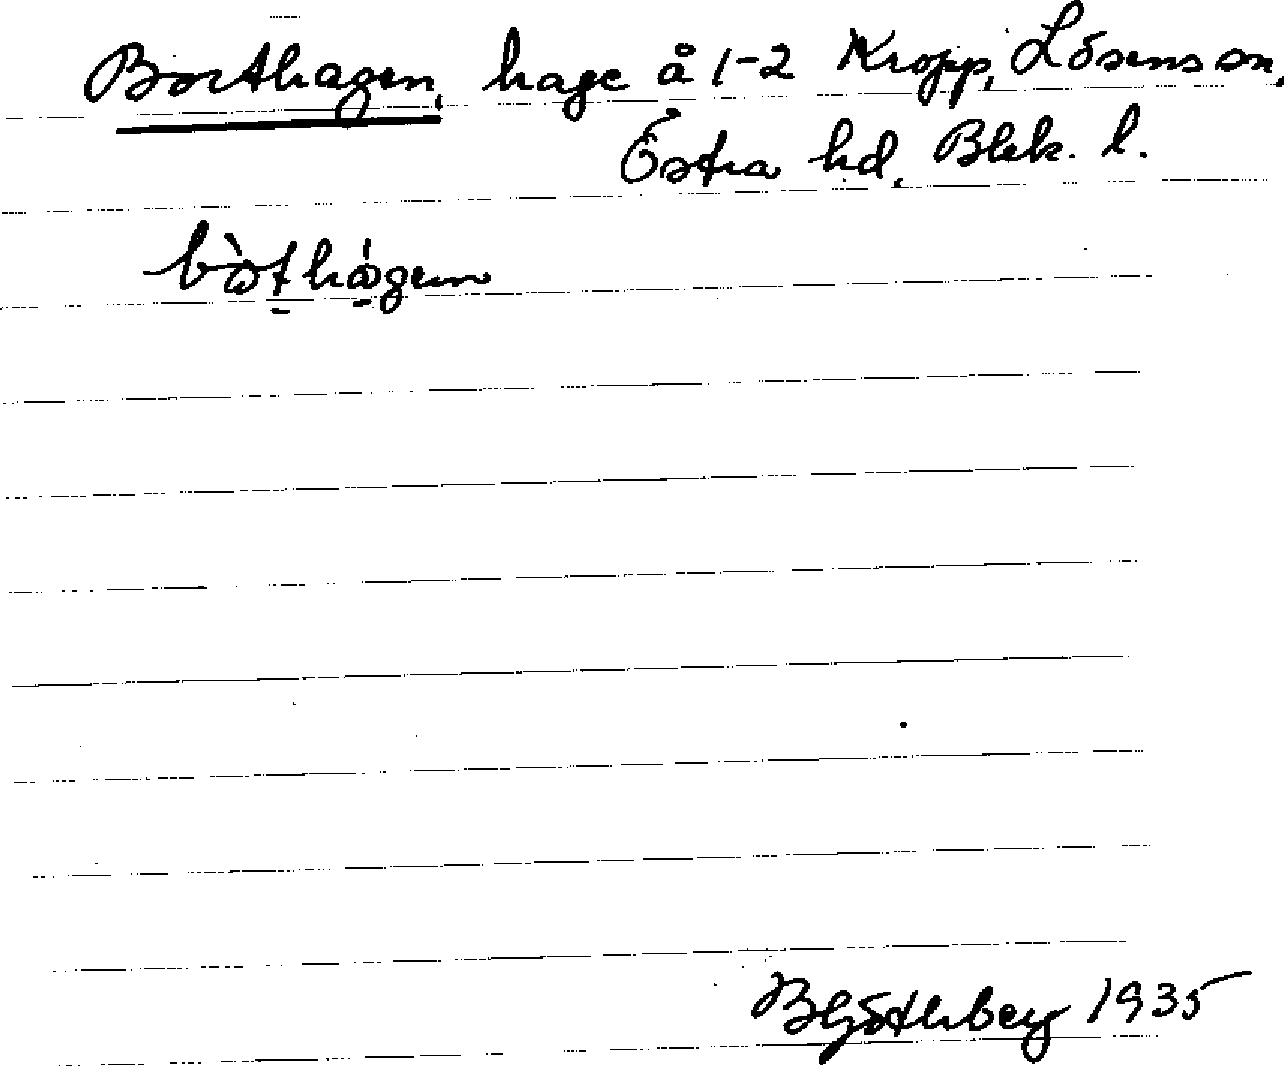 Borthagen, hage å 1-2 Kropp, Lösens sn,
Östra hd, Blek. l.
bòthágen
B Götlebey 1935